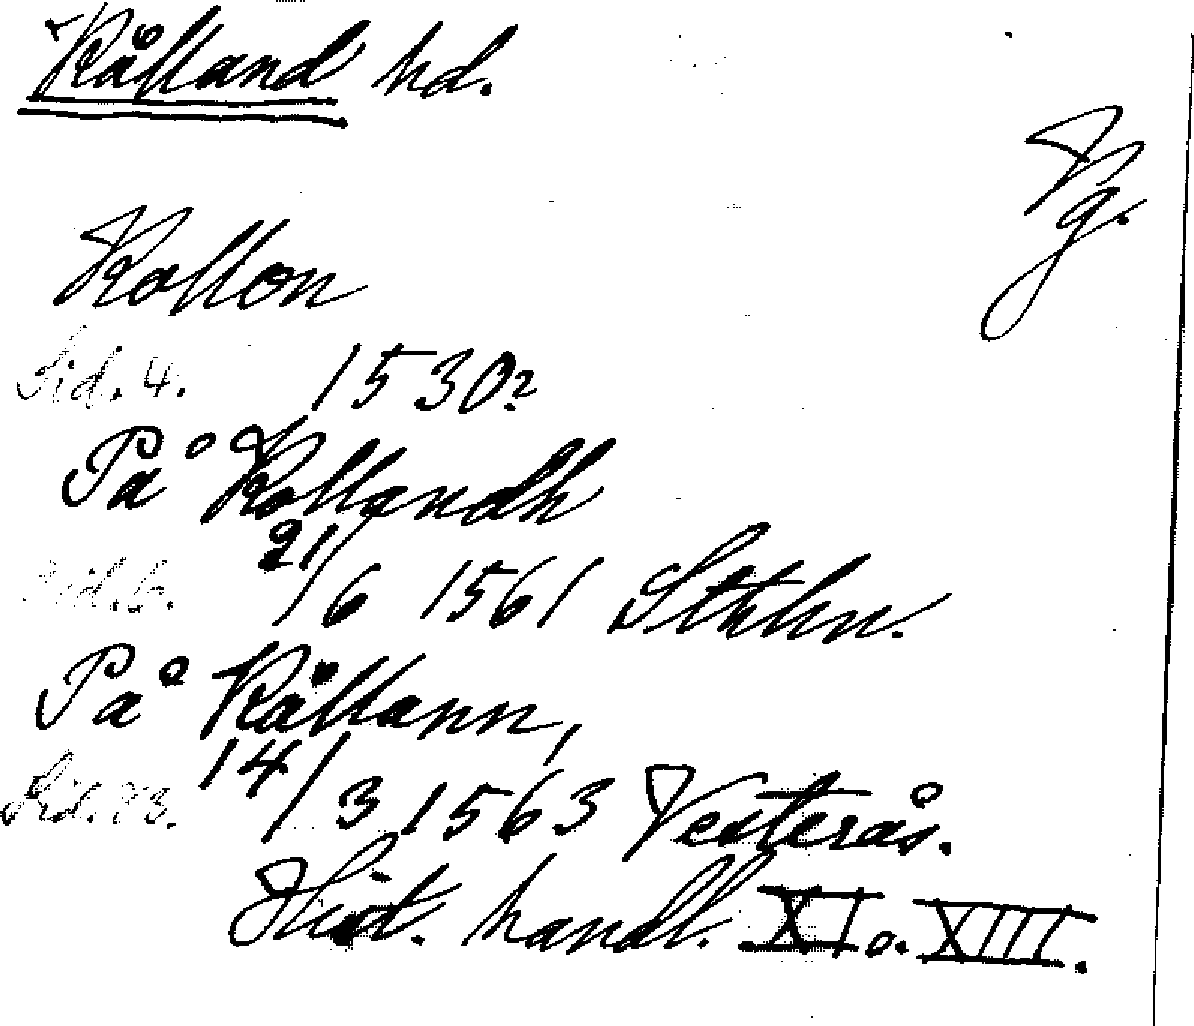 Kålland hd.
Vg.
Kollon
Sid. 4. 1530?
På Kollandh
Sid. 6. 21/6 1561 Sthlm.
På Kållann,
Sid. 83. 14/3 1563 Vesterås.
Hist. handl. XI o. XIII.